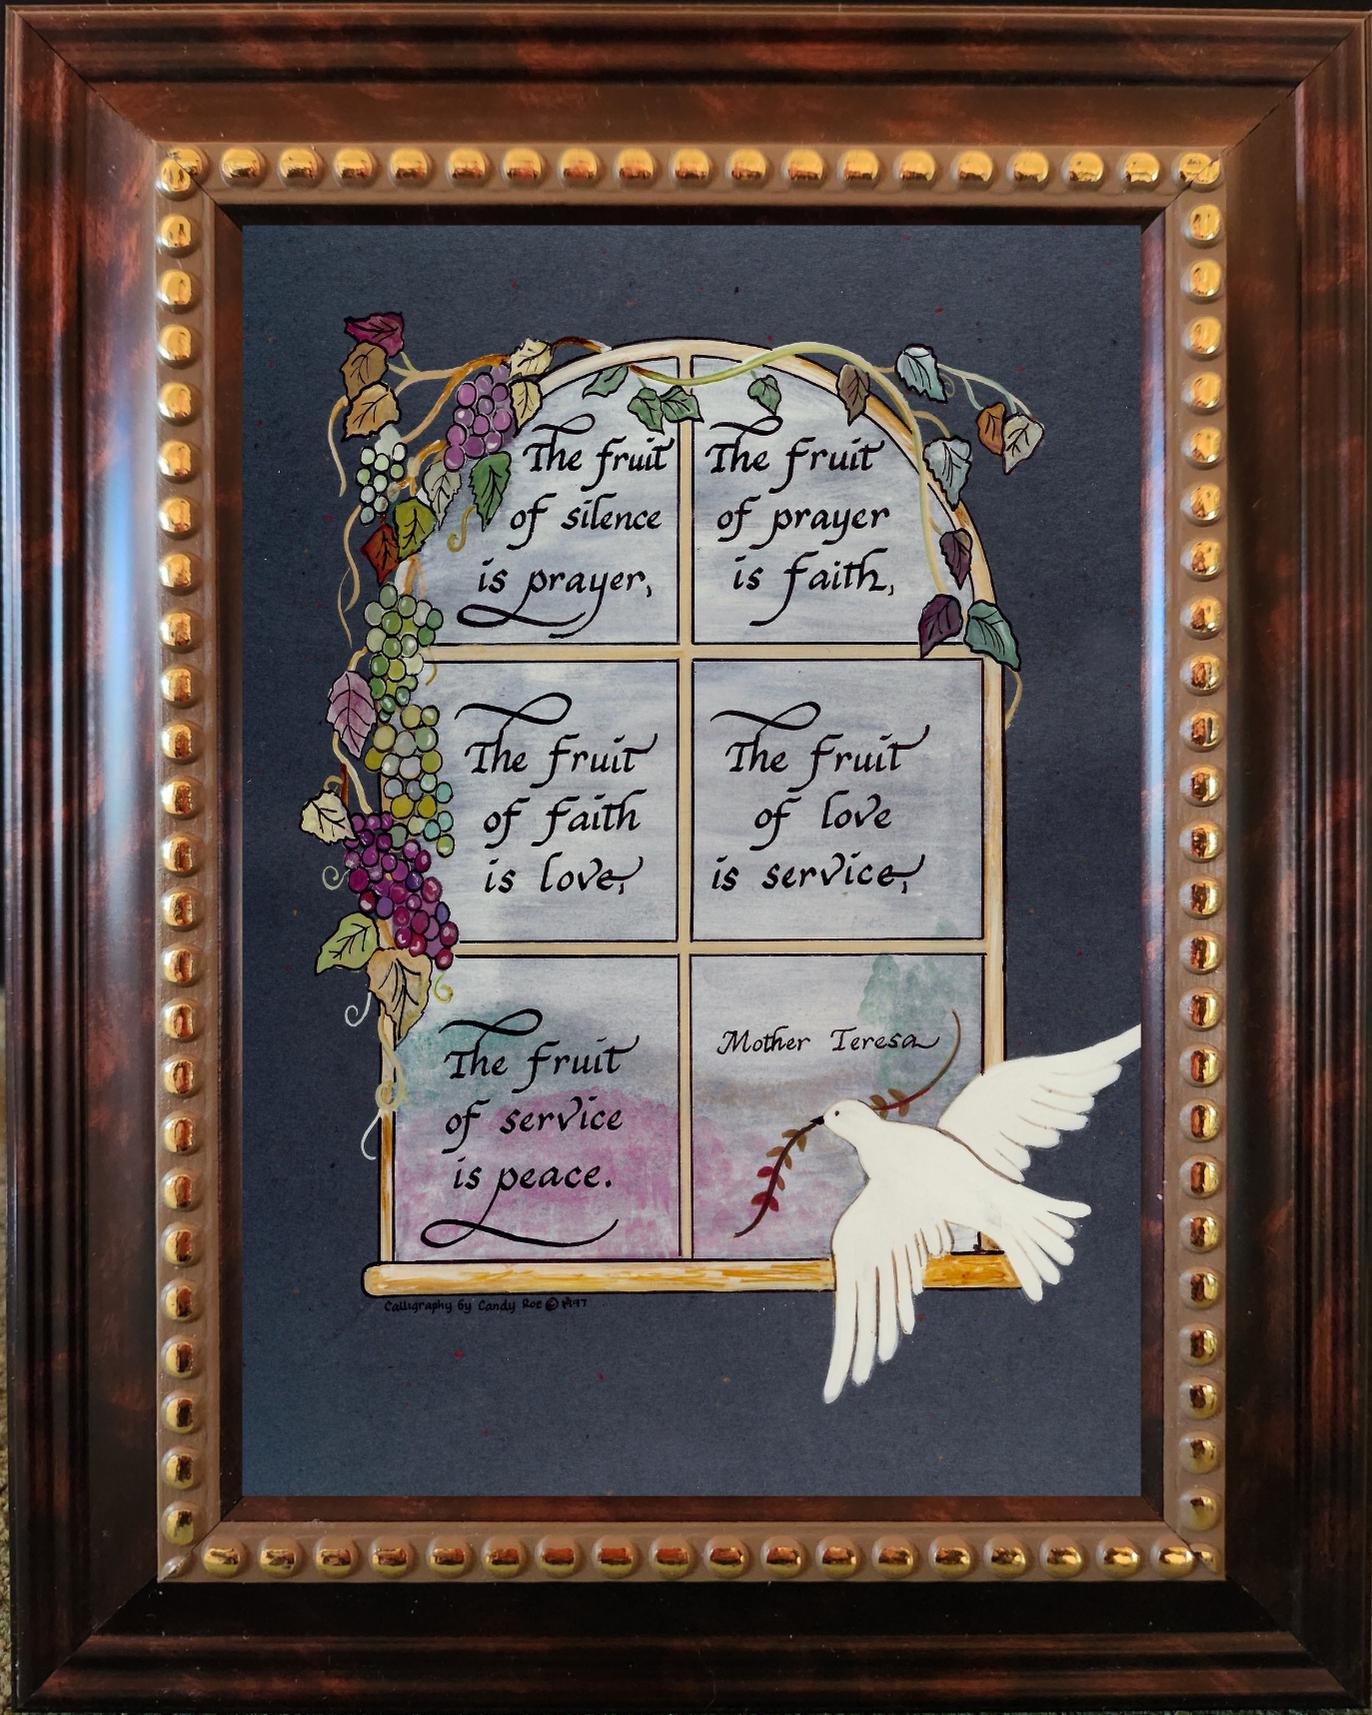 The fruit
of silence
is prayer,
The fruit
of prayer
is faith,
The fruit
of faith
is love,
The fruit
of love
is service,
The fruit
of service
is peace.
Mother Teresa
Calligraphy by Candy Roe © 1997